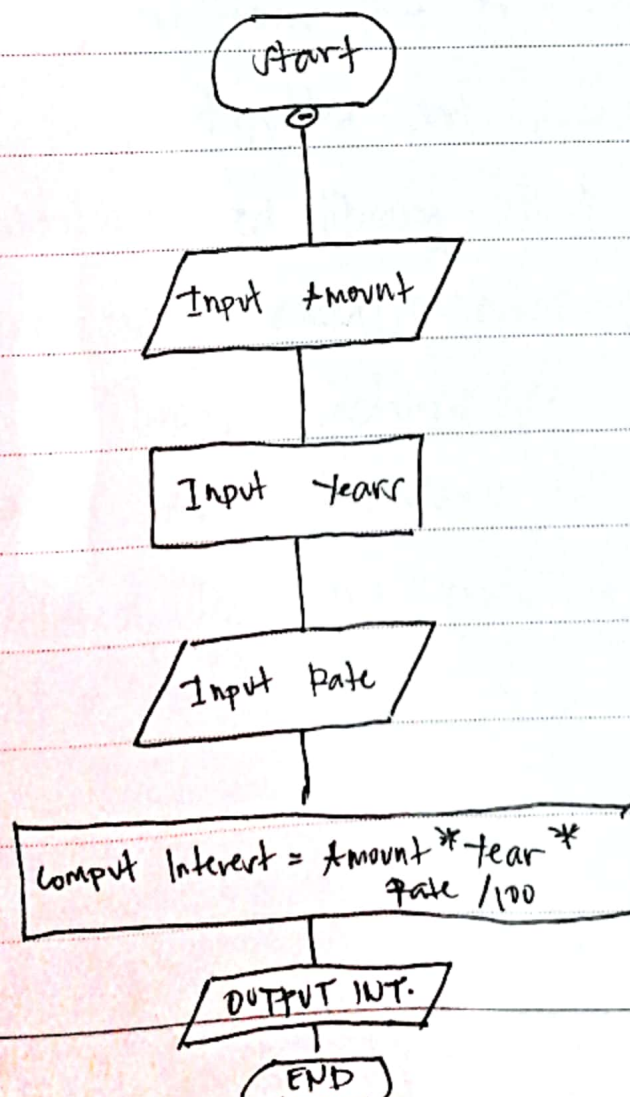 Start
Input Amount
Input Years
Input Rate
Comput Interest = Amount * Year *
Rate /100
OUTPUT INT.
END